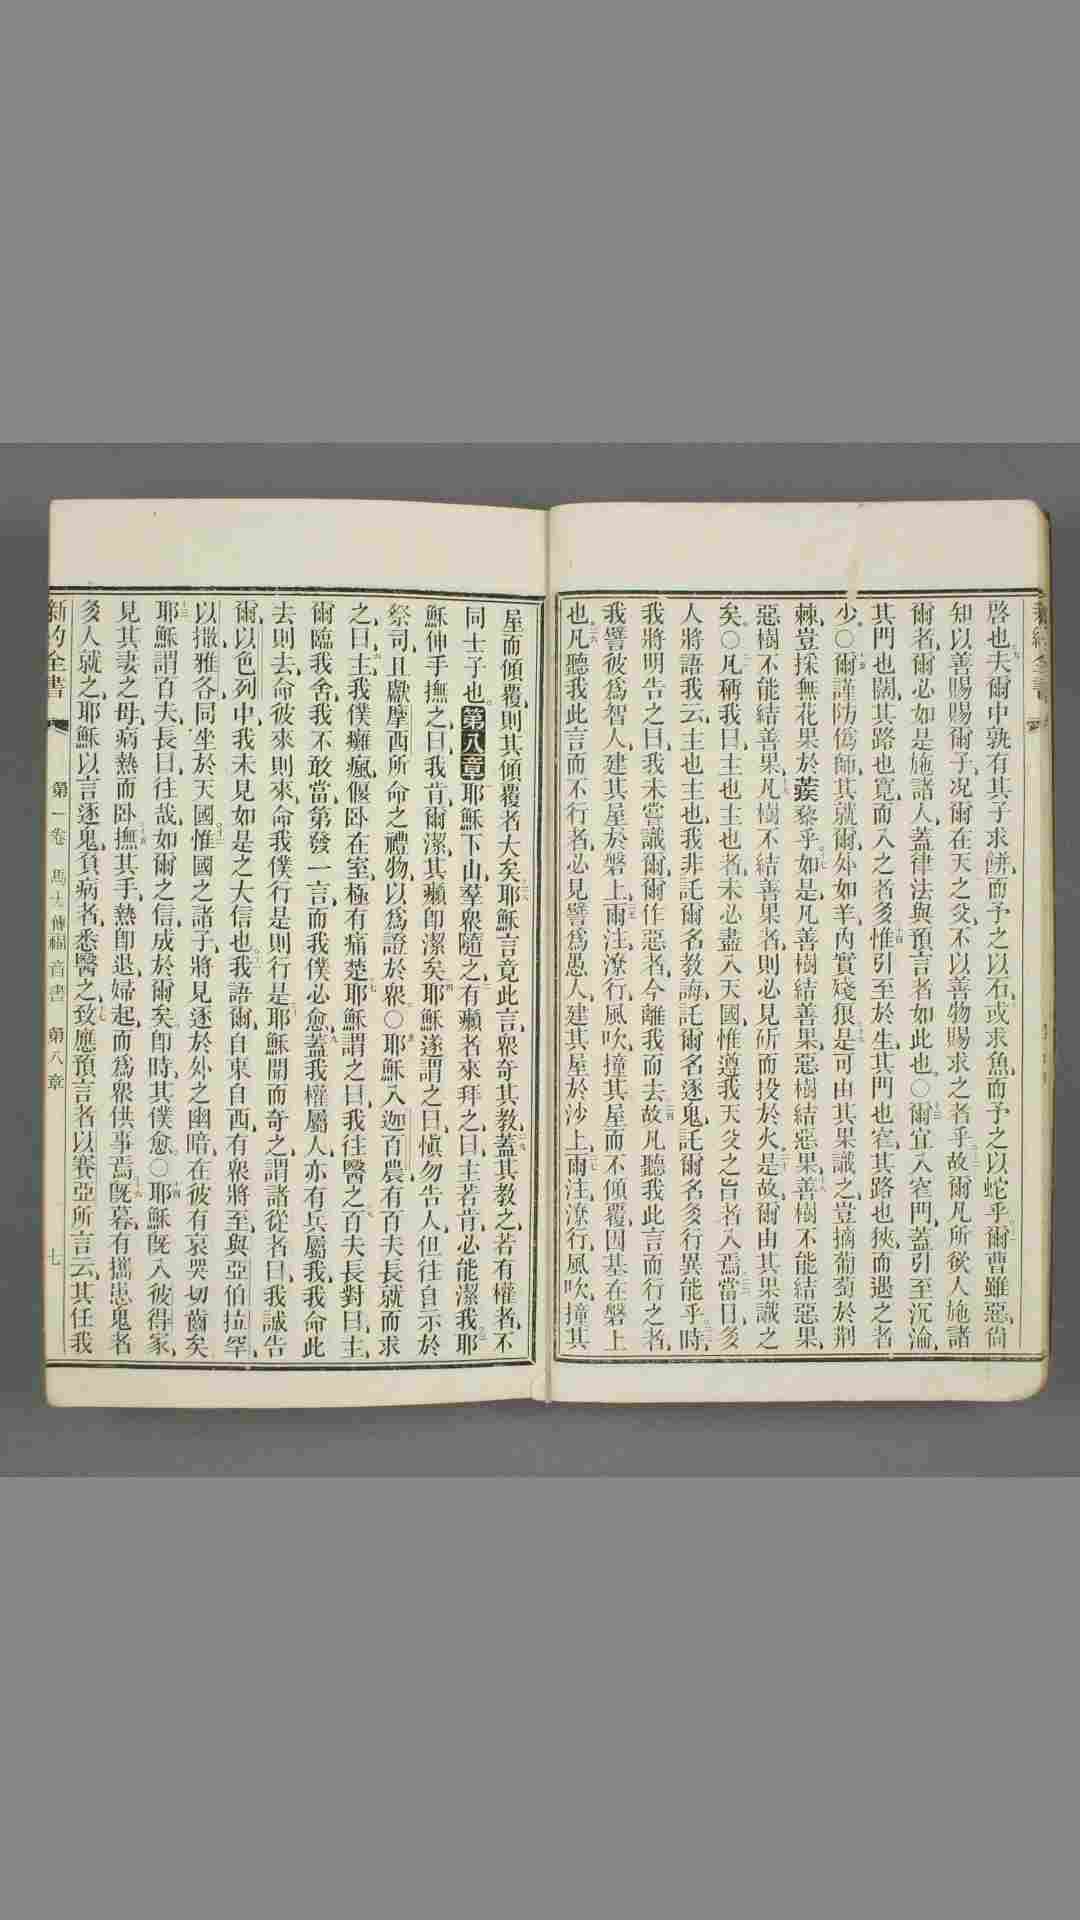 啓也夫爾中孰有其子求餅而予之以石或求魚而予之以蛇乎爾曹雖惡尙
知以善賜賜爾子况爾在天之父不以善物賜求之者乎故爾凡所欲人施諸
爾者爾必如是施諸人蓋律法與預言者如此也○爾宜入窄門蓋引至沉淪
其門也闊其路也寬而入之者多惟引至於生其門也窄其路也狹而遇之者
少○爾謹防僞師其就爾外如羊內實殘狼是可由其果識之豈摘葡萄於荆
棘豈採無花果於蒺藜乎如是凡善樹結善果惡樹結惡果善樹不能結惡果
惡樹不能結善果凡樹不結善果者則必見斫而投於火是故爾由其果識之
矣○凡稱我曰主也主也者未必盡入天國惟遵我天父之旨者入焉當日多
人將語我云主也主也我非託爾名教誨託爾名逐鬼託爾名多行異能乎時
我將明告之曰我未嘗識爾爾作惡者今離我而去故凡聽我此言而行之者
我譬彼爲智人建其屋於磐上雨注潦行風吹撞其屋而不傾覆因基在磐上
也凡聽我此言而不行者必見譬爲愚人建其屋於沙上雨注潦行風吹撞其
屋而傾覆則其傾覆者大矣耶穌言竟此言眾奇其教蓋其教之若有權者不
同士子也第八章耶穌下山羣眾隨之有癩者來拜之曰主若肯必能潔我耶
穌伸手撫之曰我肯爾潔其癩卽潔矣耶穌遂謂之曰愼勿告人但往自示於
祭司且獻摩西所命之禮物以爲證於眾○耶穌入迦百農有百夫長就而求
之曰主我僕癱瘋偃卧在室極有痛楚耶穌謂之曰我往醫之百夫長對曰主
爾臨我舍我不敢當第發一言而我僕必愈蓋我權屬人亦有兵屬我我命此
去則去命彼來則來命我僕行是則行是耶穌聞而奇之謂諸從者曰我誠告
爾以色列中我未見如是之大信也我語爾自東自西有眾將至與亞伯拉罕
以撒雅各同坐於天國惟國之諸子將見逐於外之幽暗在彼有哀哭切齒矣
耶穌謂百夫長曰往哉如爾之信成於爾矣卽時其僕愈○耶穌旣入彼得家
見其妻之母病熱而卧撫其手熱卽退婦起而爲眾供事焉旣暮有攜患鬼者
多人就之耶穌以言逐鬼負病者悉醫之致應預言者以賽亞所言云其任我
新約全書 第一卷 馬太傳福音書 第八章 七